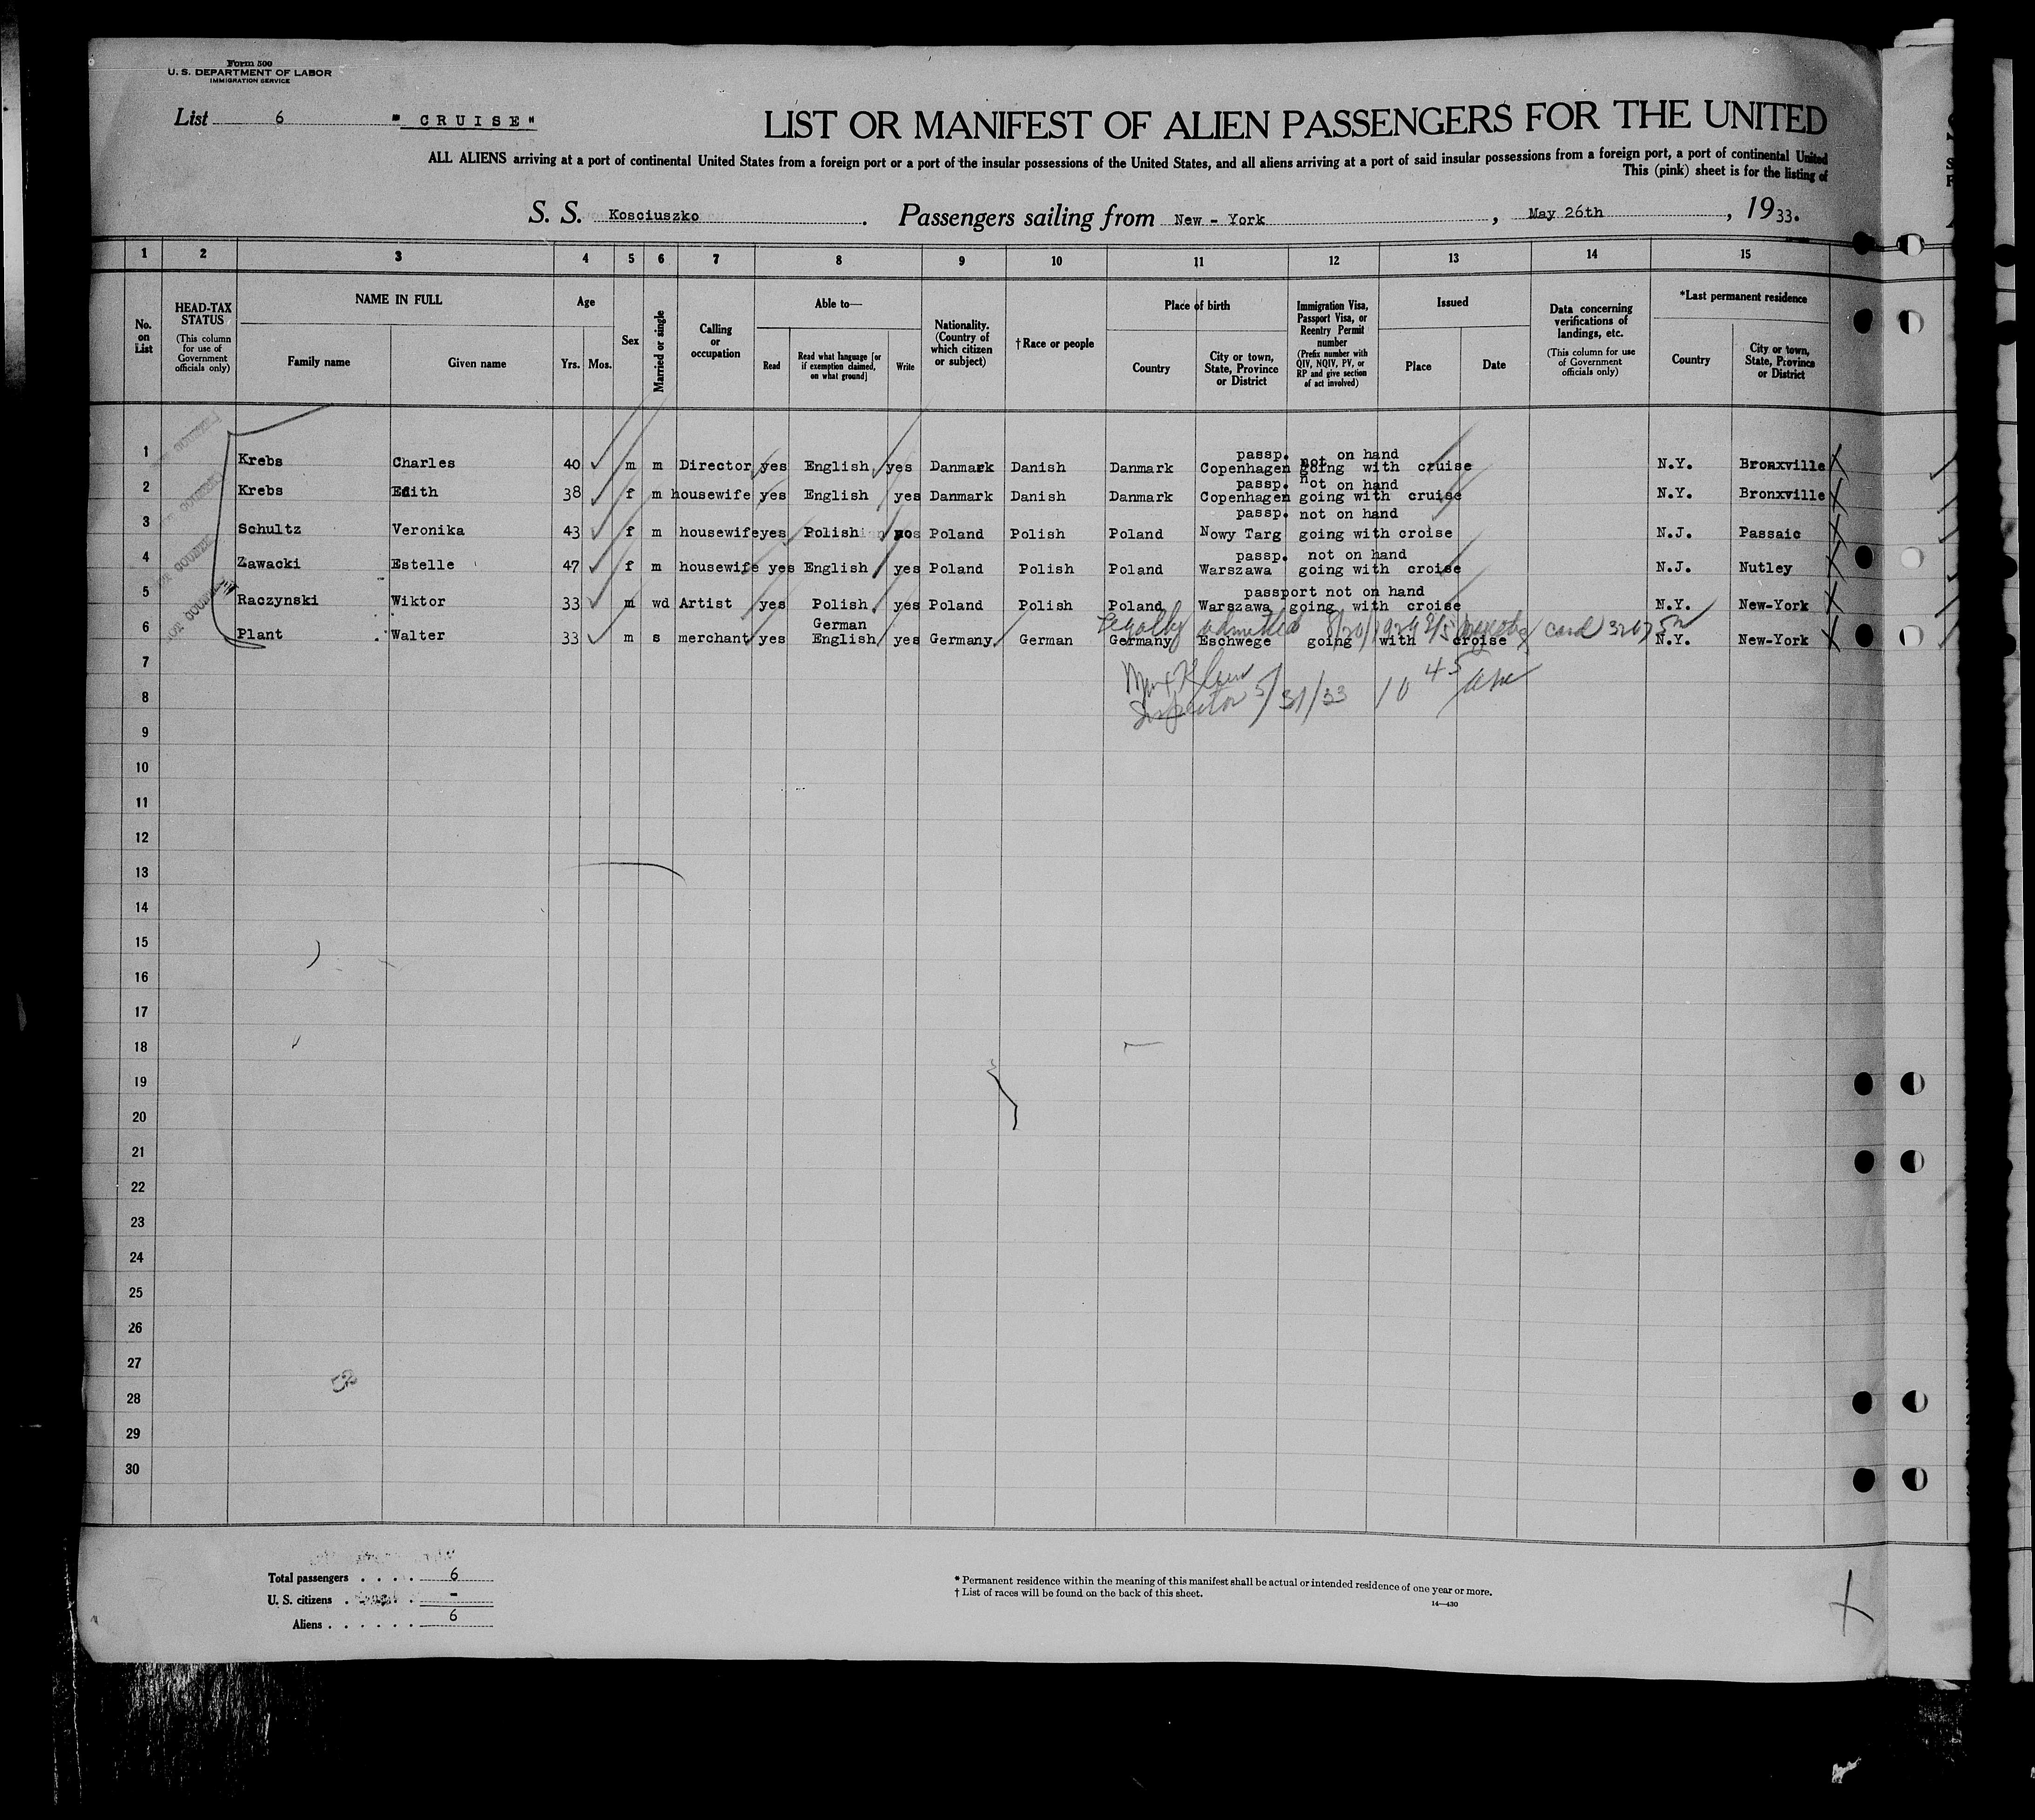 Form 500
U. S. DEPARTMENT OF LABOR
IMMIGRATION SERVICE
List 6 " CRUISE"
LIST OR MANIFEST OF ALIEN PASSENGERS FOR THE UNITED
ALL ALIENS arriving at a port of continental United States from a foreign port or a port of the insular possessions of the United States, and all aliens arriving at a port of said insular possessions from a foreign port, a port of continental United
This (pink) sheet is for the listing of
S. S. Kosciuszko. Passengers sailing from New - York, May 26th, 1933.
1 2 3 4 5 6 7 8 9 10 11 12 13 14 15
No. on List
HEAD-TAX STATUS (This column for use of Government officials only)
NAME IN FULL
Family name Given name
Age
Yrs. Mos.
Sex
Married or single
Calling or occupation
Able to—
Read Read what language [or if exemption claimed, on what ground] Write
Nationality. (Country of which citizen or subject)
†Race or people
Place of birth
Country City or town, State, Province or District
Immigration Visa, Passport Visa, or Reentry Permit number (Prefix number with QIV, NQIV, PV, or RP and give section of act involved)
Issued
Place Date
Data concerning verifications of landings, etc. (This column for use of Government officials only)
*Last permanent residence
Country City or town, State, Province or District
passp. not on hand
1 Krebs Charles 40 m m Director yes English yes Danmark Danish Danmark Copenhagen going with cruise N.Y. Bronxville
passp. not on hand
2 Krebs Edith 38 f m housewife yes English yes Danmark Danish Danmark Copenhagen going with cruise N.Y. Bronxville
passp. not on hand
3 Schultz Veronika 43 f m housewife yes Polish Poland Polish Poland Nowy Targ going with croise N.J. Passaic
passp. not on hand
4 Zawacki Estelle 47 f m housewife yes English yes Poland Polish Poland Warszawa going with croise N.J. Nutley
passport not on hand
5 Raczynski Wiktor 33 m wd Artist yes Polish yes Poland Polish Poland Warszawa going with croise N.Y. New-York
Legally admitted 8/20/1929 card
German
6 Plant Walter 33 m s merchant yes English yes Germany German Germany Eschwege going with croise N.Y. New-York
7
Inspector 5/31/33 10 45 am
8
9
10
11
12
13
14
15
16
17
18
19
20
21
22
23
24
25
26
27
28
29
30
Total passengers . . . . 6
U. S. citizens . -
Aliens . . . . . . 6
* Permanent residence within the meaning of this manifest shall be actual or intended residence of one year or more.
† List of races will be found on the back of this sheet.
14—430